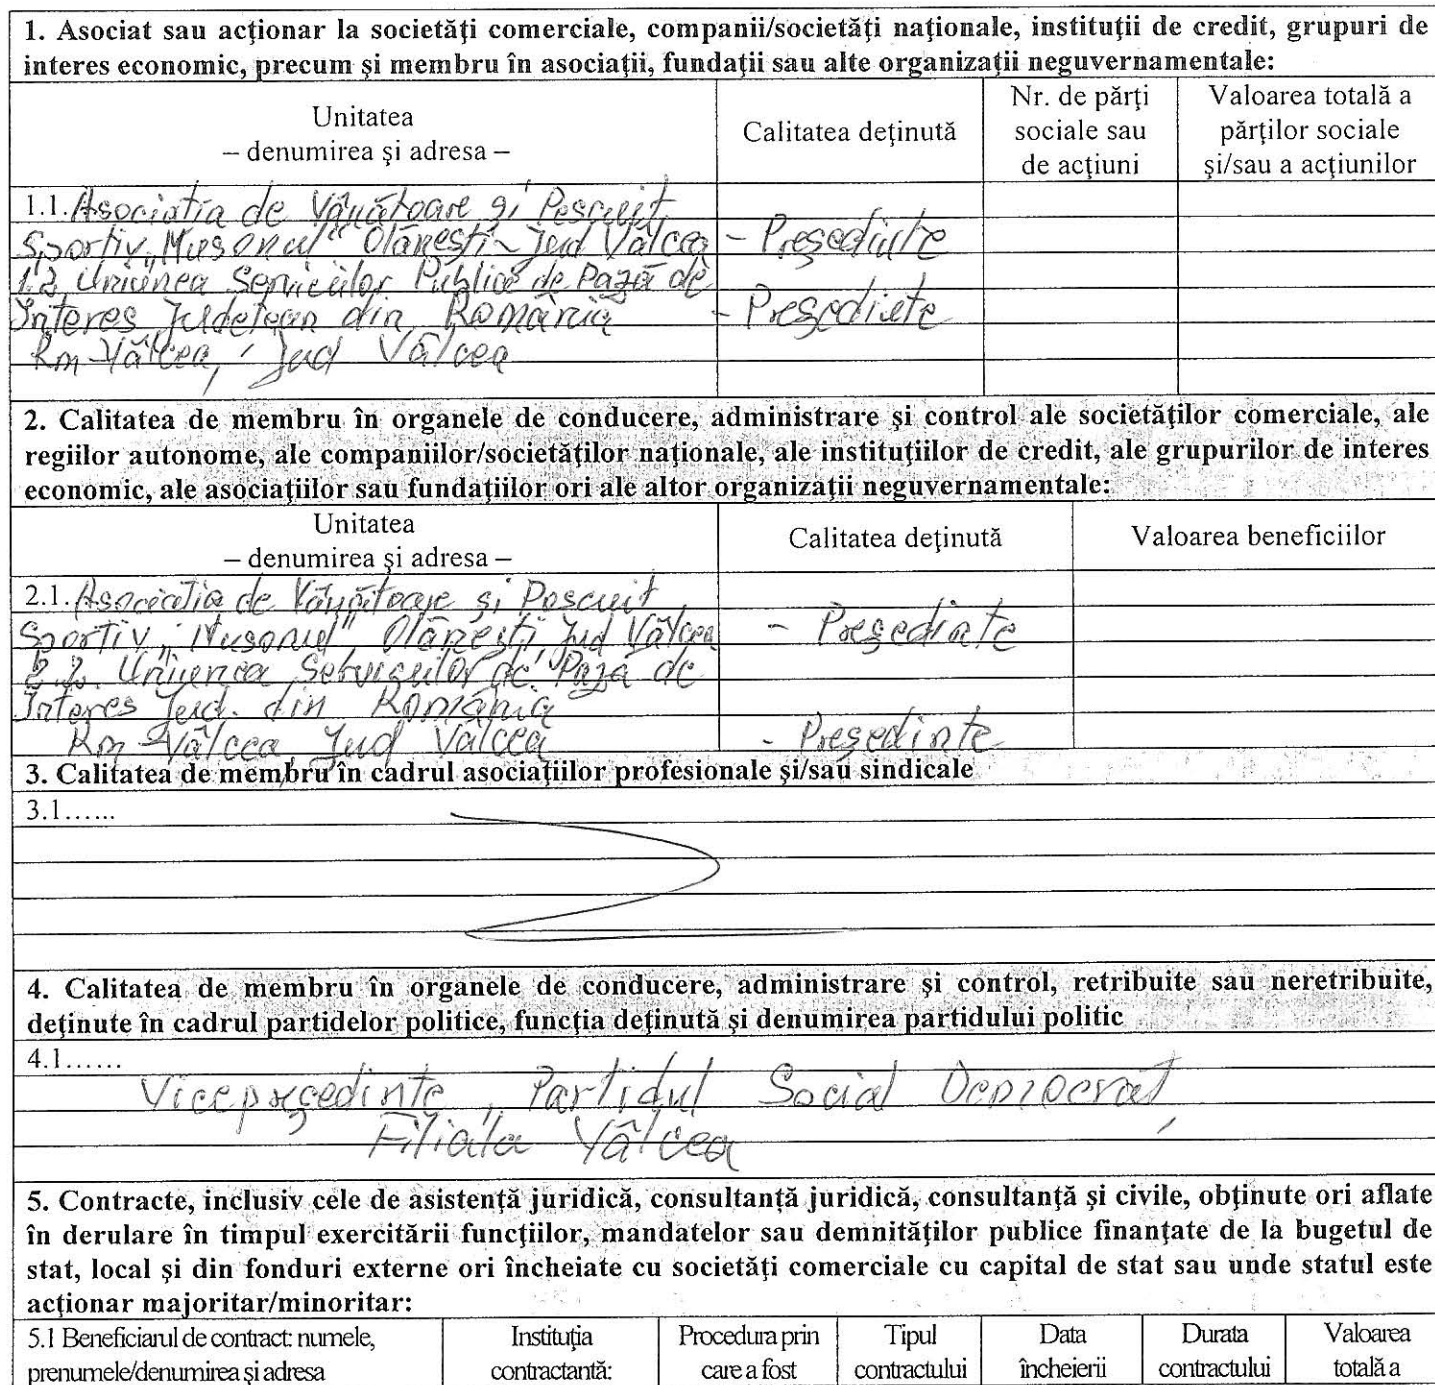 1. Asociat sau acţionar la societăţi comerciale, companii/societăţi naţionale, instituţii de credit, grupuri de
interes economic, precum şi membru în asociaţii, fundaţii sau alte organizaţii neguvernamentale:
Unitatea
– denumirea şi adresa –
Calitatea deţinută
Nr. de părţi
sociale sau
de acţiuni
Valoarea totală a
părţilor sociale
şi/sau a acţiunilor
1.1. Asociatia de Vânătoare şi Pescuit
Sportiv „Musonul" Olăneşti - Jud Vâlcea - Preşedinte
1.2 Uniunea Serviciilor Publice de Pază de
Interes Judeţean din România - Preşedinte
Rm-Vâlcea, Jud Vâlcea
2. Calitatea de membru în organele de conducere, administrare şi control ale societăţilor comerciale, ale
regiilor autonome, ale companiilor/societăţilor naţionale, ale instituţiilor de credit, ale grupurilor de interes
economic, ale asociaţiilor sau fundaţiilor ori ale altor organizaţii neguvernamentale:
Unitatea
– denumirea şi adresa –
Calitatea deţinută
Valoarea beneficiilor
2.1. Asociatia de Vânătoare şi Pescuit
Sportiv „Musonul" Olăneşti, Jud Vâlcea - Preşedinte
2.2. Uniunea Serviciilor de Pază de
Interes Jud. din România
Rm-Vâlcea, Jud Vâlcea - Preşedinte
3. Calitatea de membru în cadrul asociaţiilor profesionale şi/sau sindicale
3.1......
4. Calitatea de membru în organele de conducere, administrare şi control, retribuite sau neretribuite,
deţinute în cadrul partidelor politice, funcţia deţinută şi denumirea partidului politic
4.1......
Vicepreşedinte, Partidul Social Democrat,
Filiala Vâlcea
5. Contracte, inclusiv cele de asistenţă juridică, consultanţă juridică, consultanţă şi civile, obţinute ori aflate
în derulare în timpul exercitării funcţiilor, mandatelor sau demnităţilor publice finanţate de la bugetul de
stat, local şi din fonduri externe ori încheiate cu societăţi comerciale cu capital de stat sau unde statul este
acţionar majoritar/minoritar:
5.1 Beneficiarul de contract: numele,
prenumele/denumirea şi adresa
Instituţia
contractantă:
Procedura prin
care a fost
Tipul
contractului
Data
încheierii
Durata
contractului
Valoarea
totală a